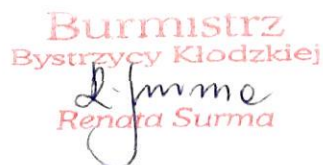 Burmistrz
Bystrzycy Kłodzkiej
R. Surma
Renata Surma